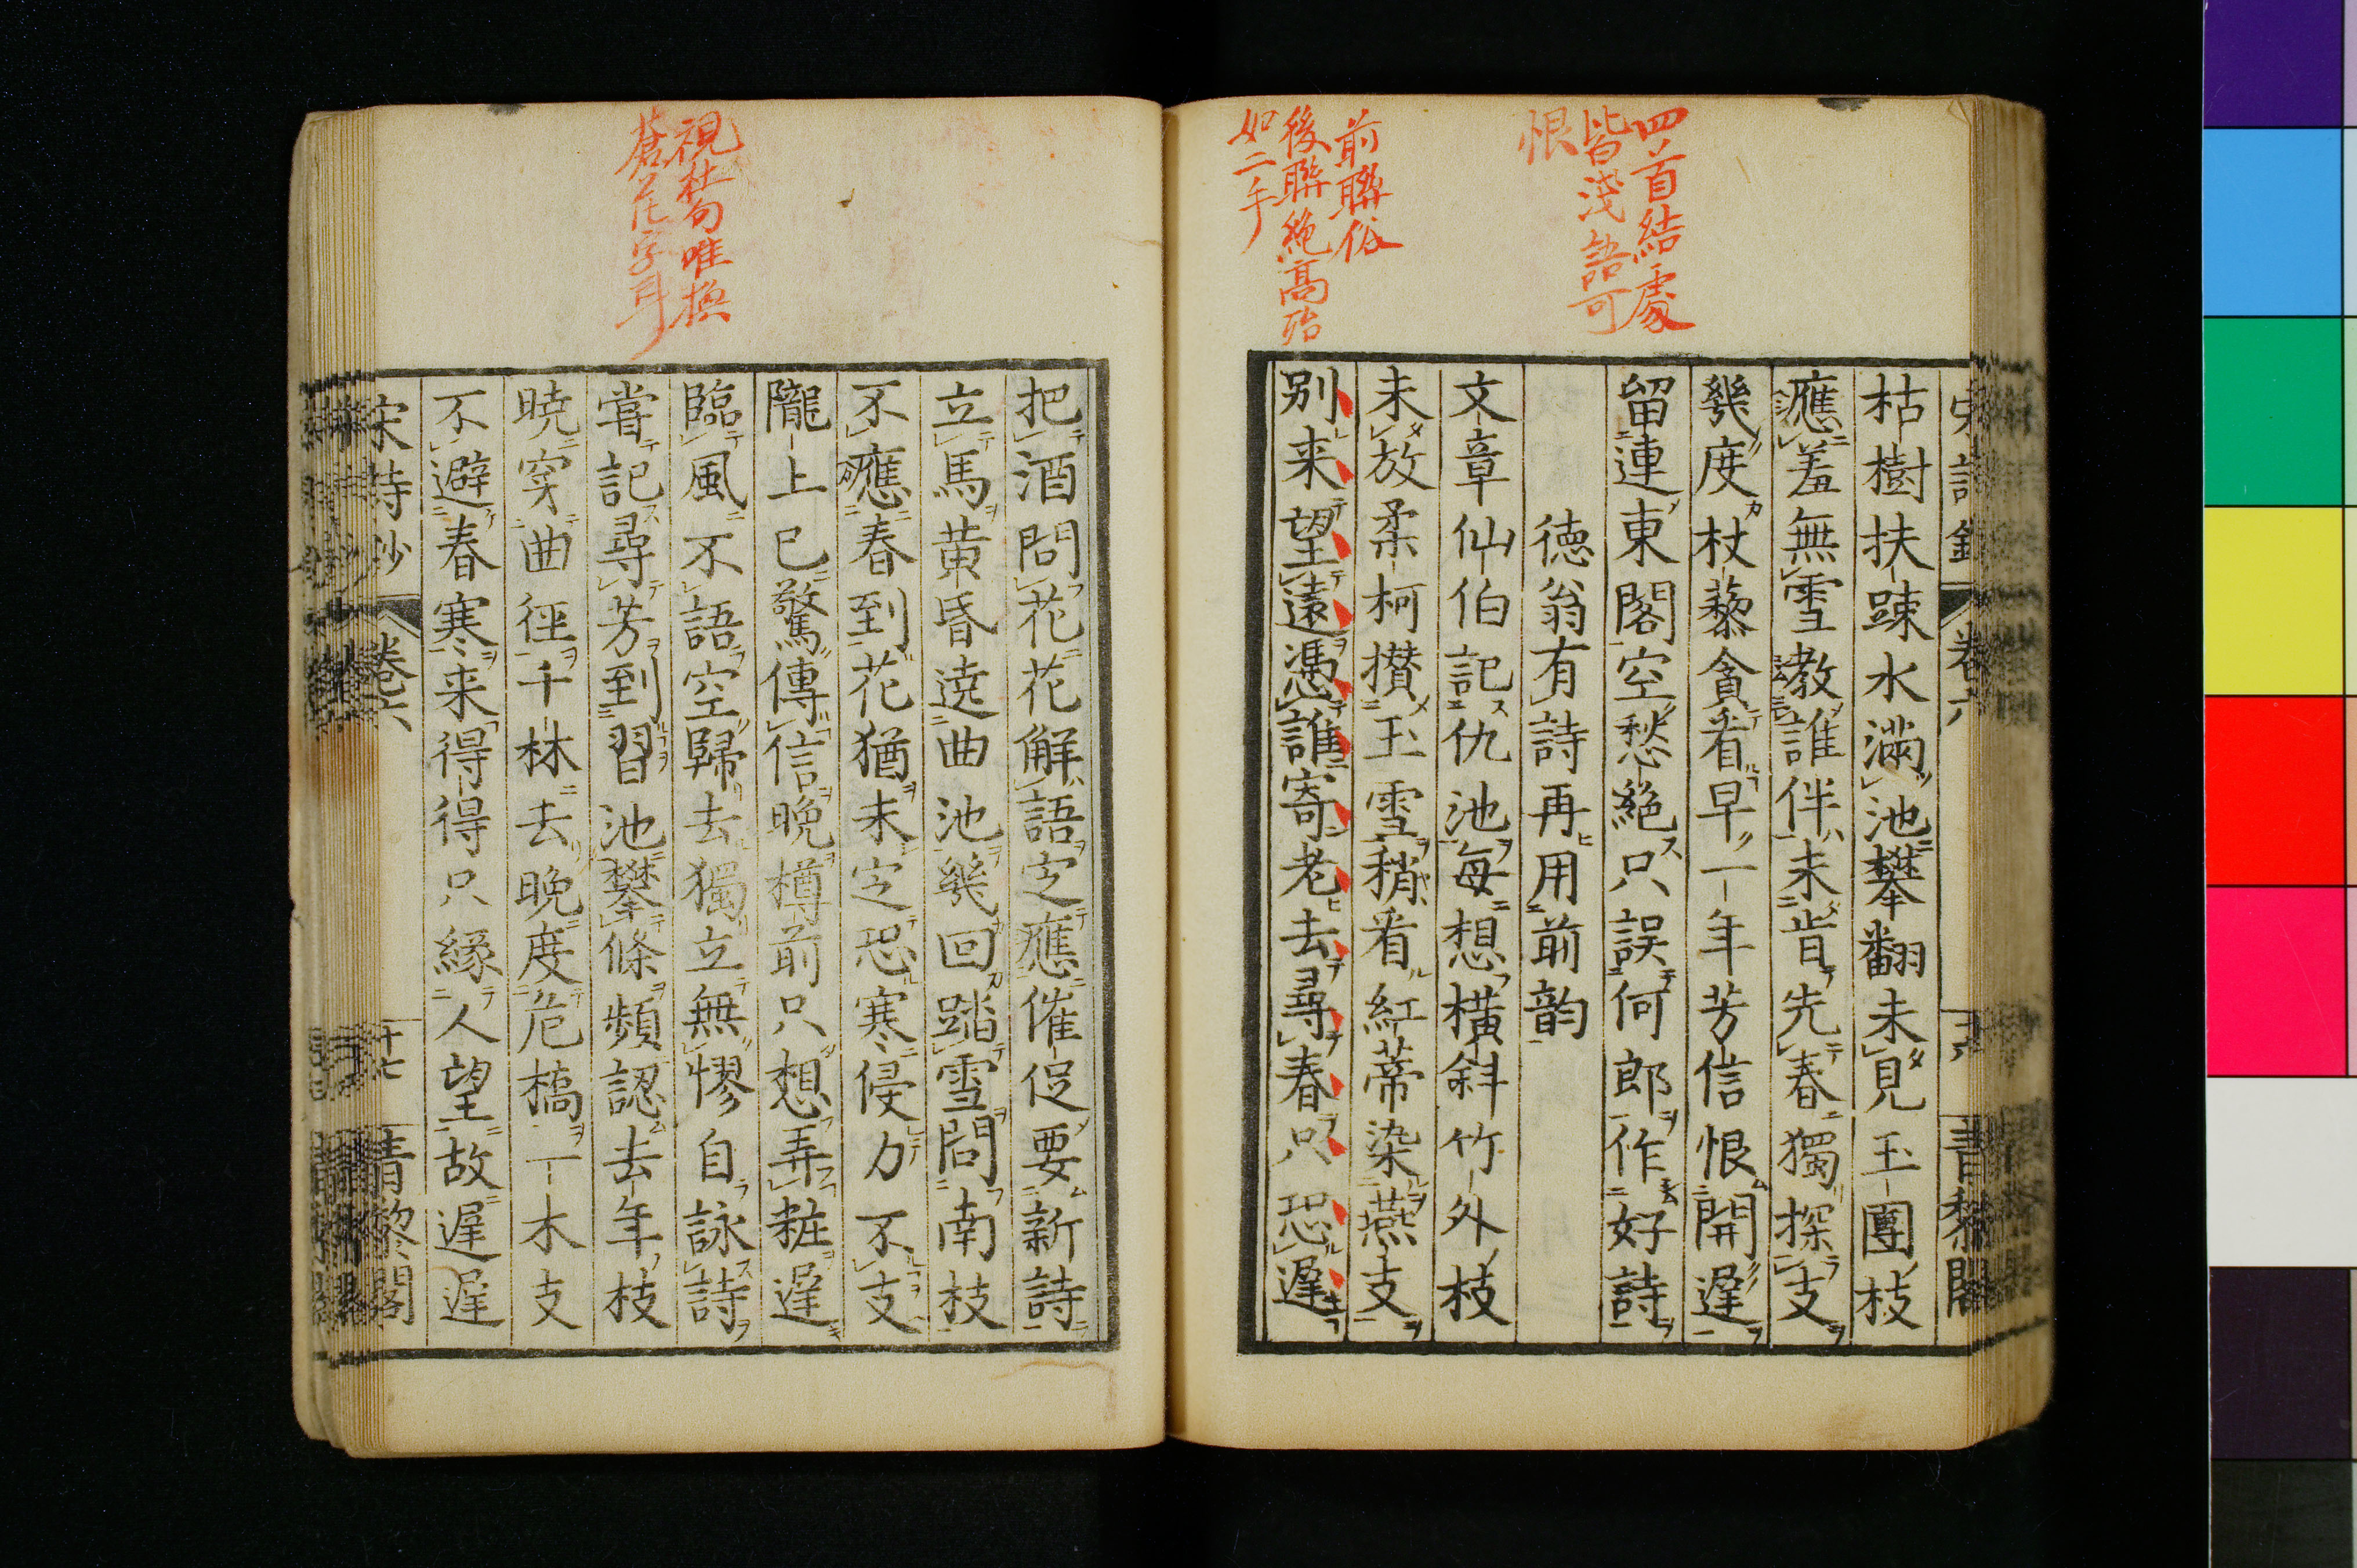 四首結處
皆淺語可
恨
前聯俗
後聯絶高殆
如二手
枯樹扶踈水滿池攀翻未見玉團枝
應羞無雪教誰伴未肯先春獨探支
幾度杖藜貪看早一年芳信恨開遲
留連東閣空愁絶只誤何郎作好詩
德翁有詩再用前韵
文章仙伯記仇池每想橫斜竹外枝
未放柔柯攅玉雪稍看紅蒂染燕支
别来望遠憑誰寄老去尋春只恐遲
視杜句唯換
花字耳
把酒問花花解語定應催促要新詩
立馬黄昏遶曲池幾回踏雪問南枝
不應春到花猶未定恐寒侵力不支
隴上已驚傳信晚樽前只想弄粧遲
臨風不語空歸去獨立無憀自詠詩
嘗記尋芳到習池攀條頻認去年枝
曉穿曲徑千林去晚度危橋一木支
不避春寒来得得只緣人望故遲遲
宋詩鈔
卷六
十七
青黎閣